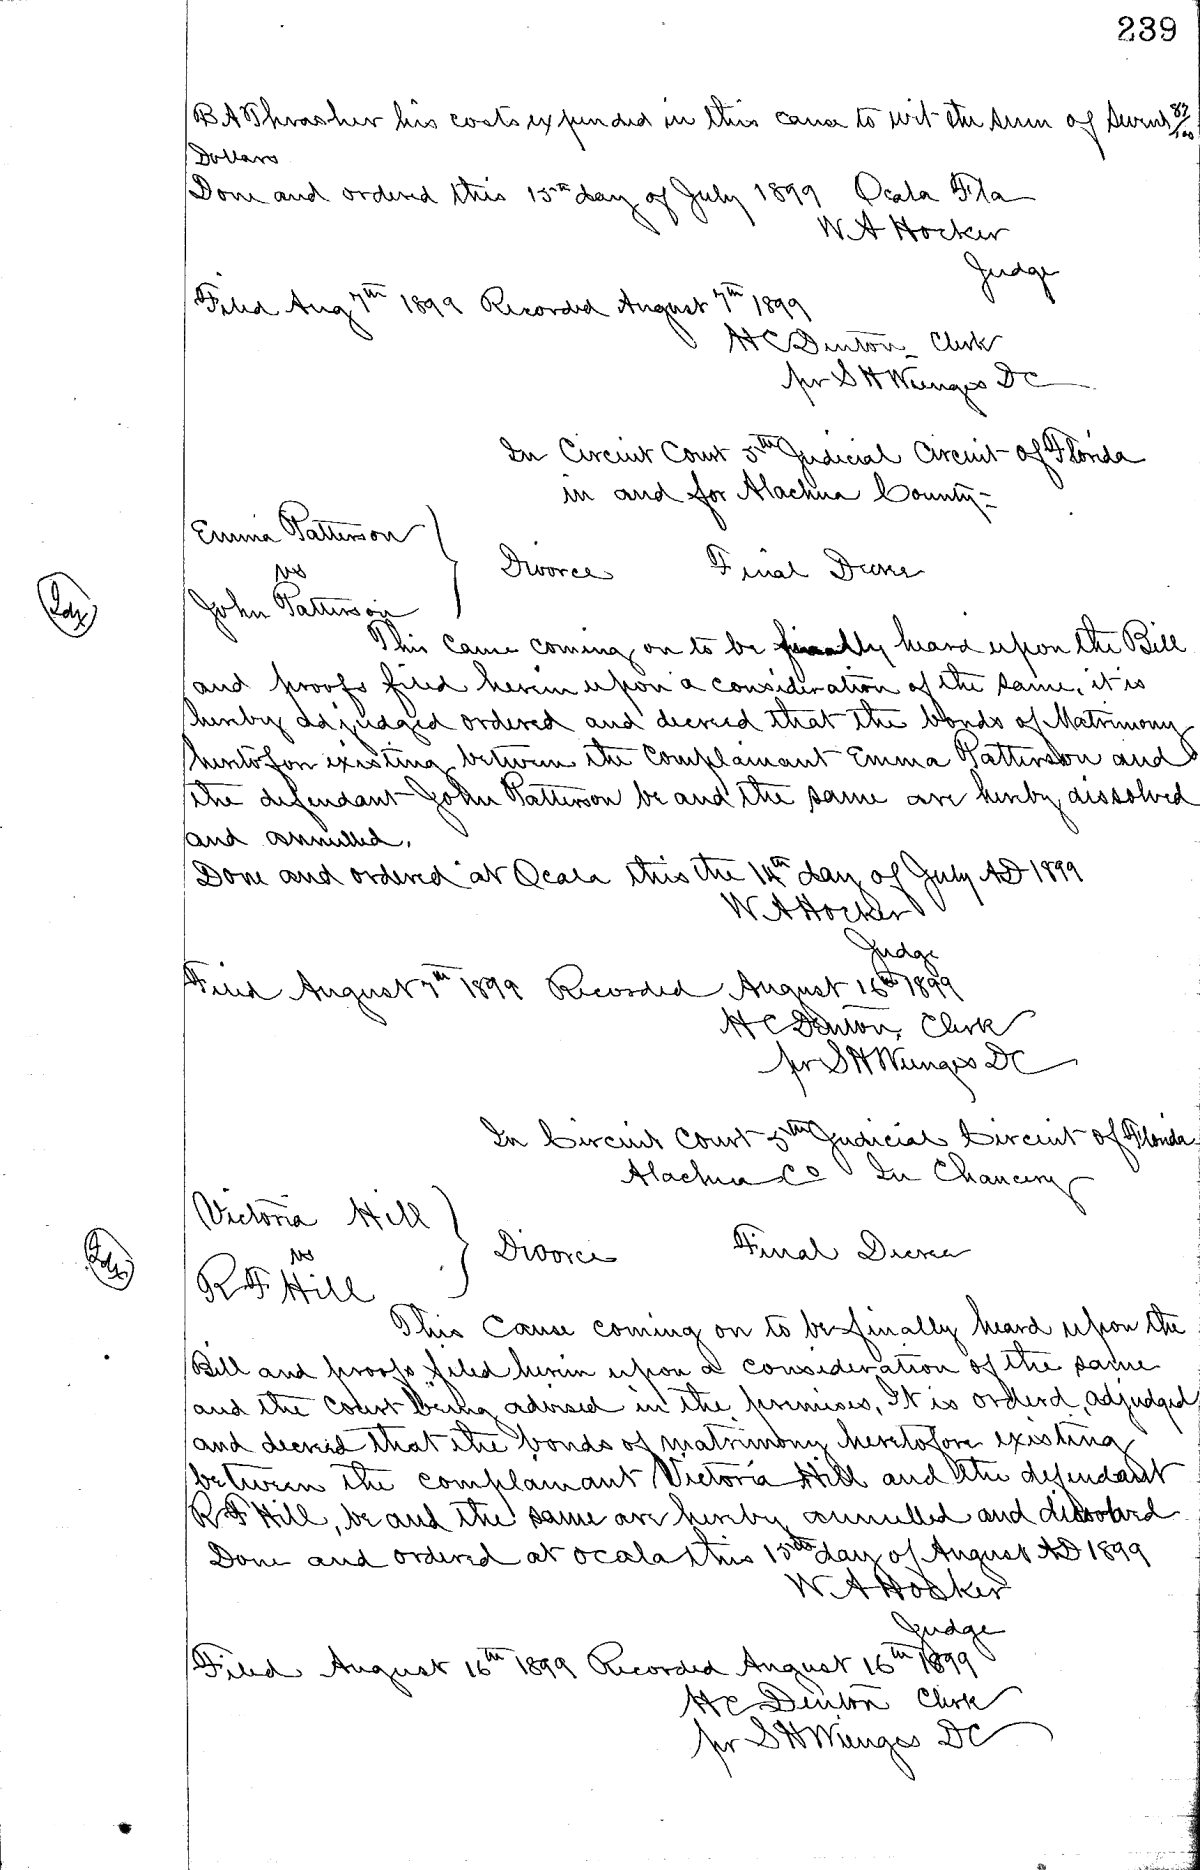 239
B A Thrasher his costs expended in this cause to wit the sum of Seven 82/100
Dollars
Done and ordered this 15th day of July 1899 Ocala Fla
W. A Hocker
Judge
Filed Aug 7th 1899 Recorded August 7th 1899
H C Denton Clerk
pr S H Wienges DC
In Circuit Court 5th Judicial Circuit of Florida
in and for Alachua County
Emma Patterson
vs
Divorce Final Decree
John Patterson
Idx
This Cause coming on to be finally heard upon the Bill
and proofs filed herein upon a consideration of the same, it is
hereby adjudged ordered and decreed that the bonds of Matrimony
heretofore existing between the Complainant Emma Patterson and
the defendant John Patterson be and the same are hereby dissolved
and annulled.
Done and ordered at Ocala this the 14th day of July AD 1899
W. A Hocker
Judge
Filed August 7th 1899 Recorded August 16th 1899
H C Denton, Clerk
pr S H Wienges DC
In Circuit Court 5th Judicial Circuit of Florida
Alachua Co In Chancery
Victoria Hill
vs
Divorce Final Decree
R F Hill
Idx
This Cause coming on to be finally heard upon the
Bill and proofs filed herein upon a consideration of the same
and the Court being advised in the premises, It is orderd, adjudged
and decreed that the bonds of matrimony heretofore existing
between the complainant Victoria Hill and the defendant
R F Hill, be and the same are hereby annulled and dissolved
Done and ordered at Ocala this 15th day of August AD 1899
W. A Hocker
Judge
Filed August 16th 1899 Recorded August 16th 1899
H C Denton Clerk
pr S H Wienges DC